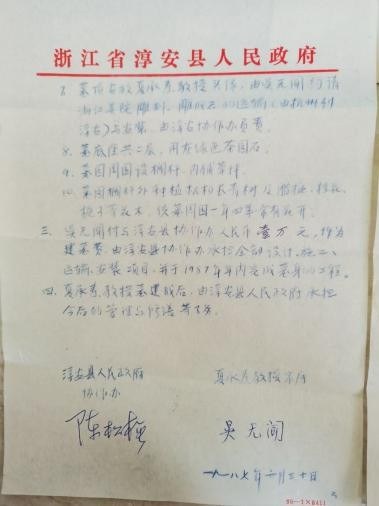 浙江省淳安县人民政府
7. 墓顶右放夏承焘教授头像,由吴无闻约请
浙江美院雕刻,雕成后的运输(由杭州到
淳安)与安装,由淳安协作办负责。
8. 墓底座共二层,用灰绿色花岗石。
9. 墓园周围设栅杆,内铺草坪。
10. 墓园栅杆外种植松柏长青树及腊梅、桂花、
桃子等花木,使墓周围一年四季常有花开。
三、吴无闻付与淳安县协作办人民币壹万元,作为
建墓费,由淳安县协作办承担全部设计、施工、
运输、安装项目,并于1987年年内完成墓身的工程。
四、夏承焘教授墓建成后,由淳安县人民政府承担
今后的管理与修缮等事务。
淳安县人民政府
协作办
陈松
夏承焘教授家属
吴无闻
一九八七年 月三十日